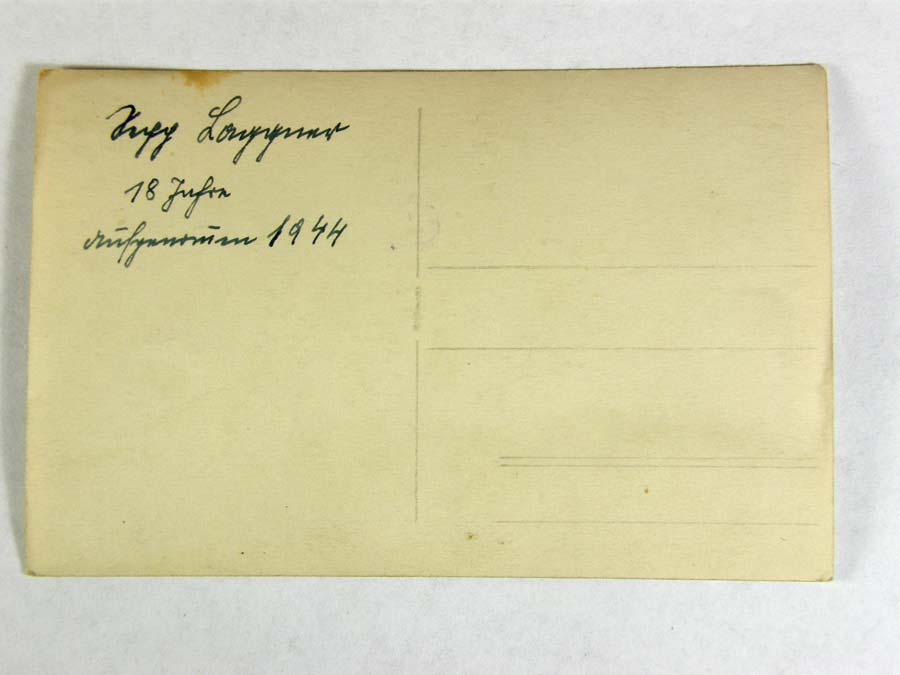 Sepp Laggner
18 Jahre
aufgenomen 1944